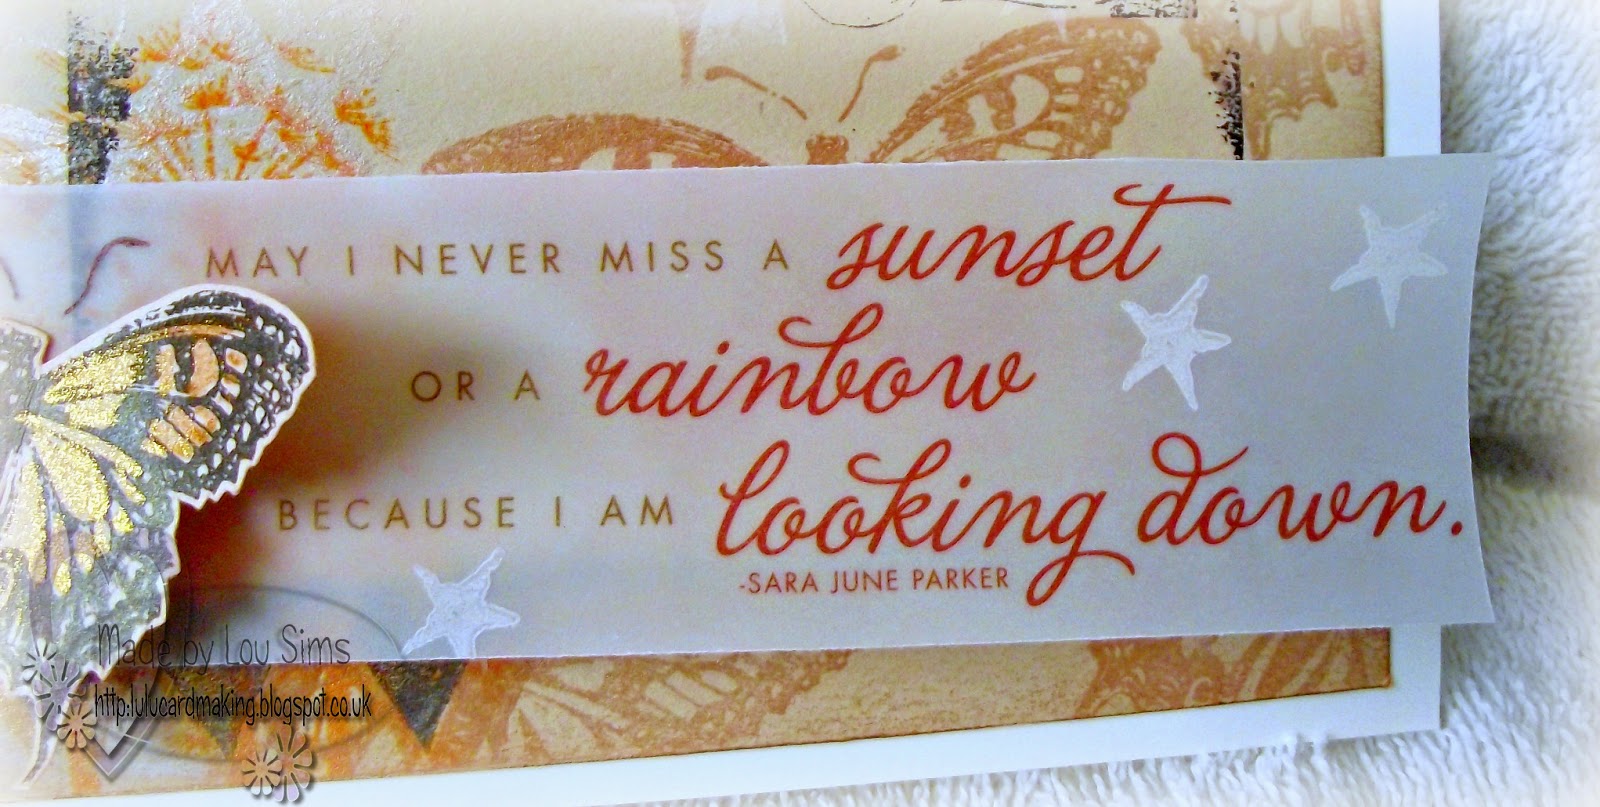 MAY I NEVER MISS A sunset
OR A rainbow
BECAUSE I AM looking down.
-SARA JUNE PARKER
Made by Lou Sims
http:lulucardmaking.blogspot.co.uk